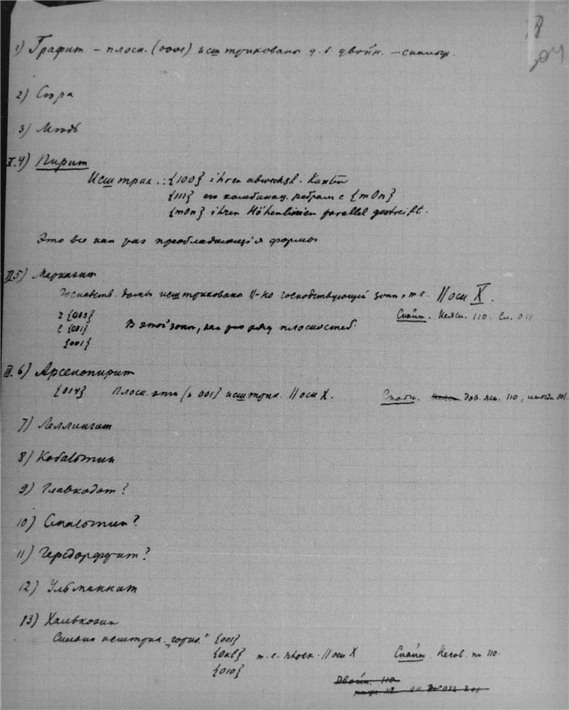 1) Графит – плоск. (0001) исштрихована
2) Сѣра
3) Мѣдь
I. 4) Пирит
Исштрих. : {100} ihren abwechsl. Kanten
{111} его комбинац. ребрам с {m0n}
{m0n} ihren Höhenlinien parallel gestreift.
Это все как раз преобладающiя формы
II. 5) Марказит
Господств. домы исштрихованы ||-но господствующей зоне, т.е. || оси X.
{001} В этой зоне, как раз ряд плоскостей Спайн. Неясн. 110. Сл. 011
{001}
III. 6) Арсенопирит
{014} Плоск. эти исштрих. || оси X. Спайн. дов. ясн. 110, иногда 001.
7) Леллингит
8) Кобальтин
9) Главкодот?
10) Смальтин?
11) Герсдорфит?
12) Ульманнит
13) Халькозин
Сильно исштрих. {001}
{0kl} т.е. || оси X Спайн. Несов. по 110.
{010}
Двойн. 110